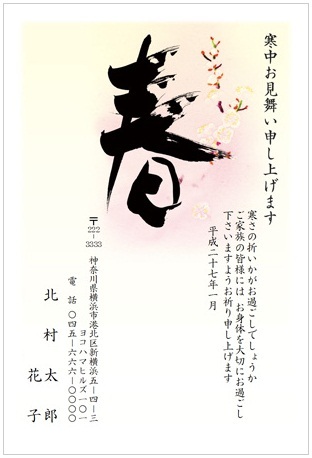 寒中お見舞い申し上げます
春
寒さの折いかがお過ごしでしょうか
ご家族の皆様には お身体を大切にお過ごし
下さいますようお祈り申し上げます
平成二十七年一月
〒222-3333
神奈川県横浜市港北区新横浜五-四-三
ヨコハマヒルズ一〇一
電話 〇四五-六六六-〇〇〇〇
北村太郎
花子